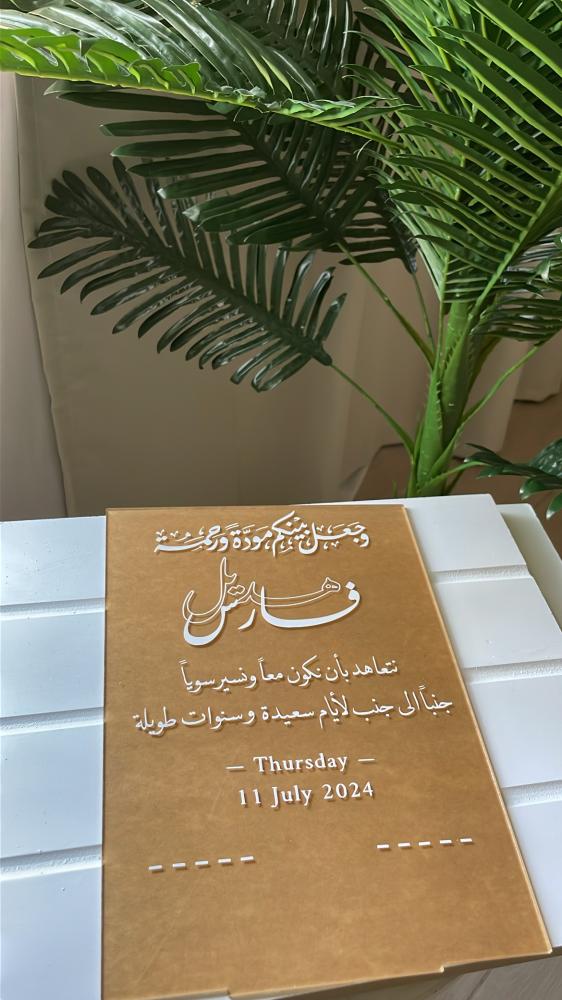 وجعل بينكم مودّة ورحمة
فارس هديل
نتعاهد بأن نكون معاً ونسير سوياً
جنباً الى جنب لأيام سعيدة وسنوات طويلة
— Thursday —
11 July 2024